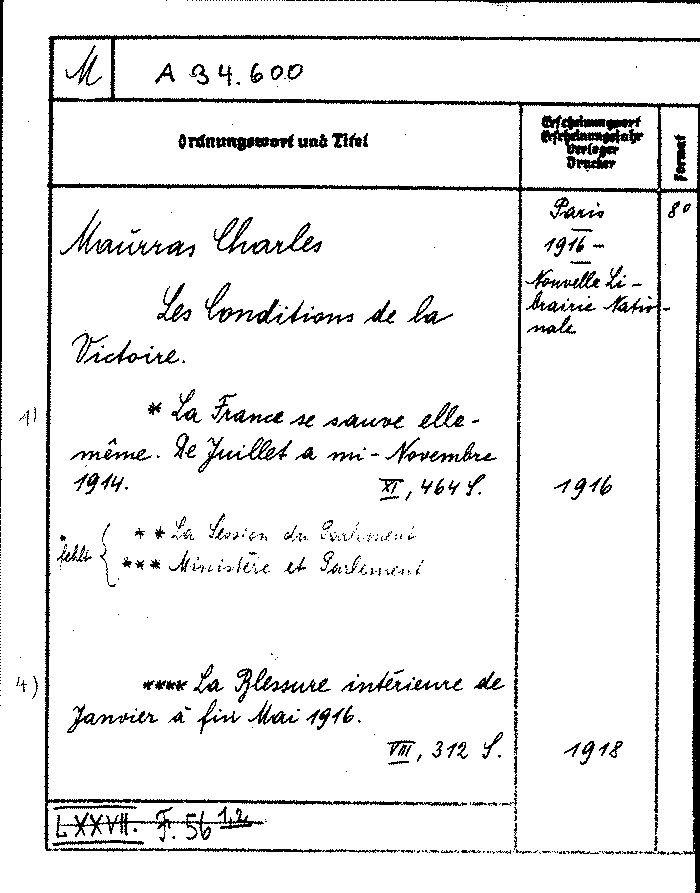 M
A 34.600
Ordnungswort und Titel
Erscheinungsort
Erscheinungsjahr
Verleger
Drucker
Format
Maurras Charles
Les Conditions de la
Victoire.
Paris
1916 -
Nouvelle Li-
brairie Natio-
nale
8°
1) * La France se sauve elle-
même. De Juillet a mi-Novembre
1914. XI, 464 S. 1916
fehlt { ** La Session du Parlement
*** Ministère et Parlement
4) **** La Blessure intérieure de
Janvier à fin Mai 1916.
VIII, 312 S. 1918
LXXVII. F. 56 1,2.